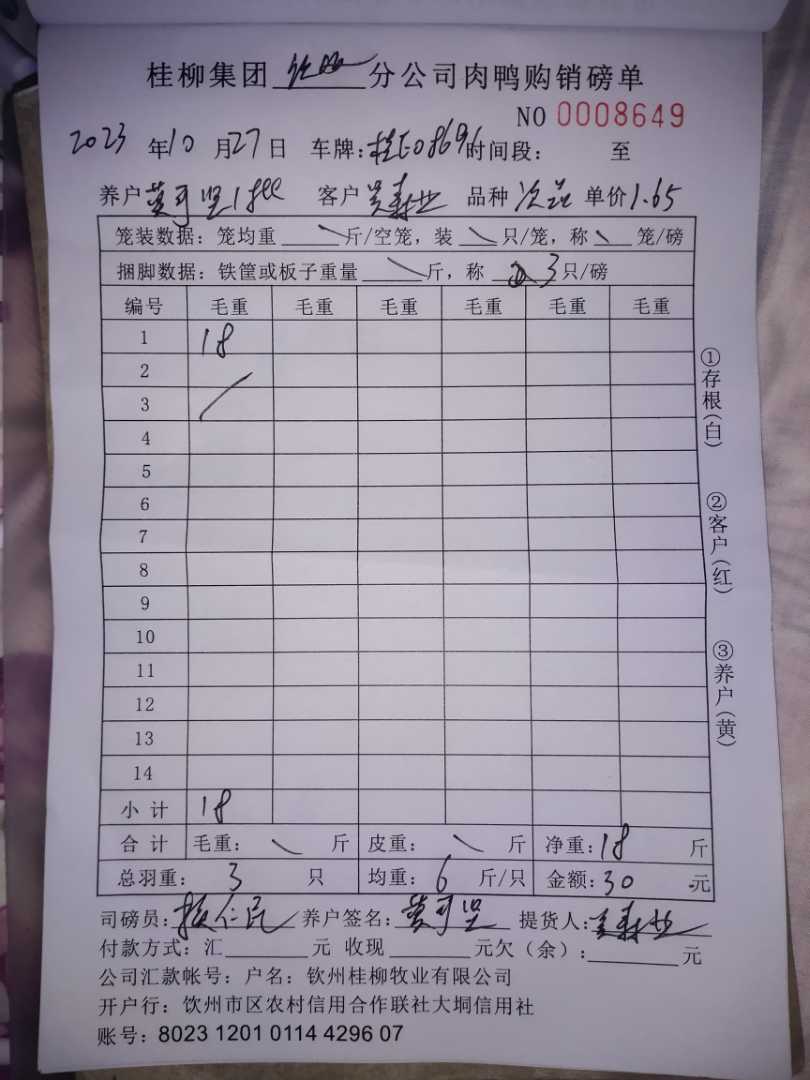 桂柳集团 分公司肉鸭购销磅单
NO 0008649
2023年10月27日 车牌:桂 08696 时间段: 至
养户 黄可坚 客户 品种 次品 单价 1.65
笼装数据:笼均重 斤/空笼,装 只/笼,称 笼/磅
捆脚数据:铁筐或板子重量 斤,称 3只/磅
编号 毛重 毛重 毛重 毛重 毛重 毛重
1 18
2
3
4
5
6
7
8
9
10
11
12
13
14
小计 18
合计 毛重: 斤 皮重: 斤 净重:18 斤
总羽重: 3 只 均重: 6 斤/只 金额:30 元
司磅员: 仁民 养户签名:黄可坚 提货人:
付款方式:汇 元 收现 元欠(余): 元
公司汇款帐号:户名:钦州桂柳牧业有限公司
开户行:钦州市区农村信用合作联社大垌信用社
账号:8023 1201 0114 4296 07
①存根(白)
②客户(红)
③养户(黄)